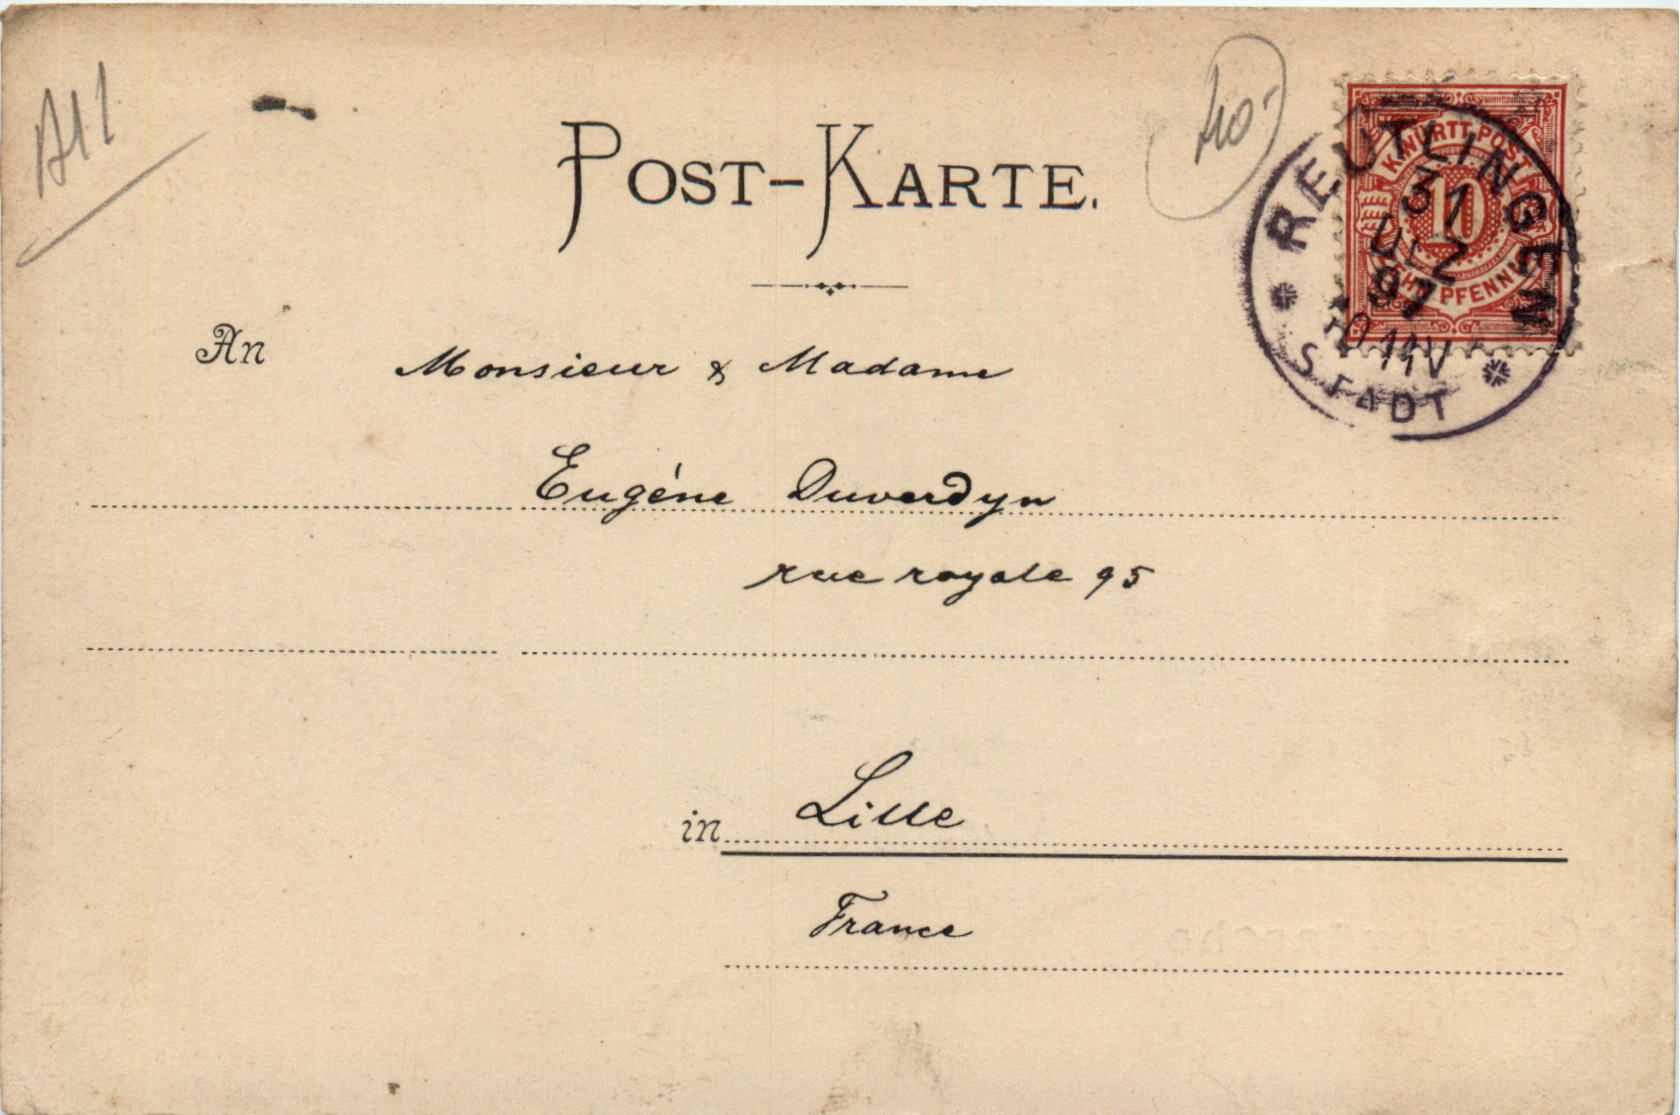 POST-KARTE.
40.-
K. WÜRTT. POST
10
ZEHN PFENNIG
REUTLINGEN
31
DEZ
97
STADT
An Monsieur & Madame
Eugéne Duverdyn
rue royale 95
in Lille
France